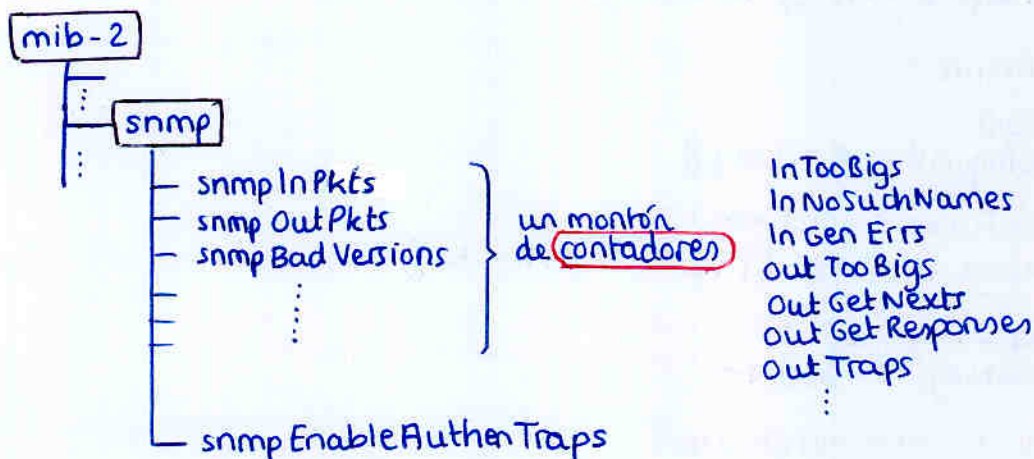 mib-2
snmp
snmpInPkts
snmpOutPkts
snmpBadVersions
un montón
de contadores
InTooBigs
InNoSuchNames
In Gen Errs
out TooBigs
Out GetNexts
out Get Responses
out Traps
snmpEnableAuthenTraps